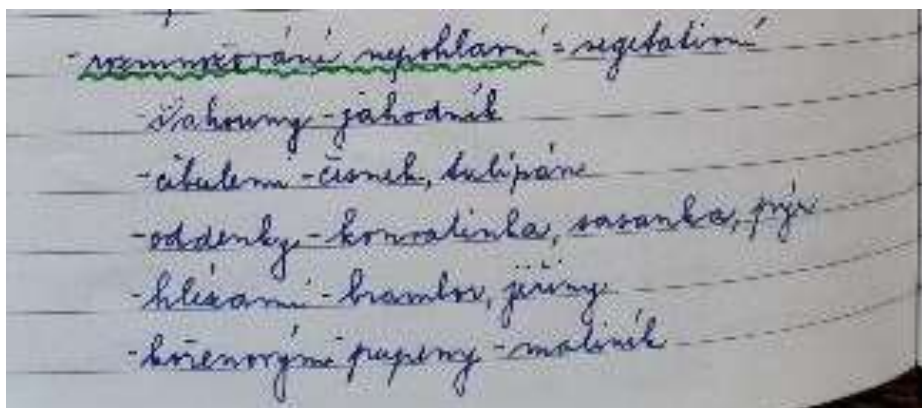 - rozmnožování nepohlavní = vegetativní
- šlahouny - jahodník
- cibulemi - česnek, tulipán
- oddenky - konvalinka, sasanka, pýr
- hlízami - brambor, jiřiny
- kořenovými pupeny - maliník